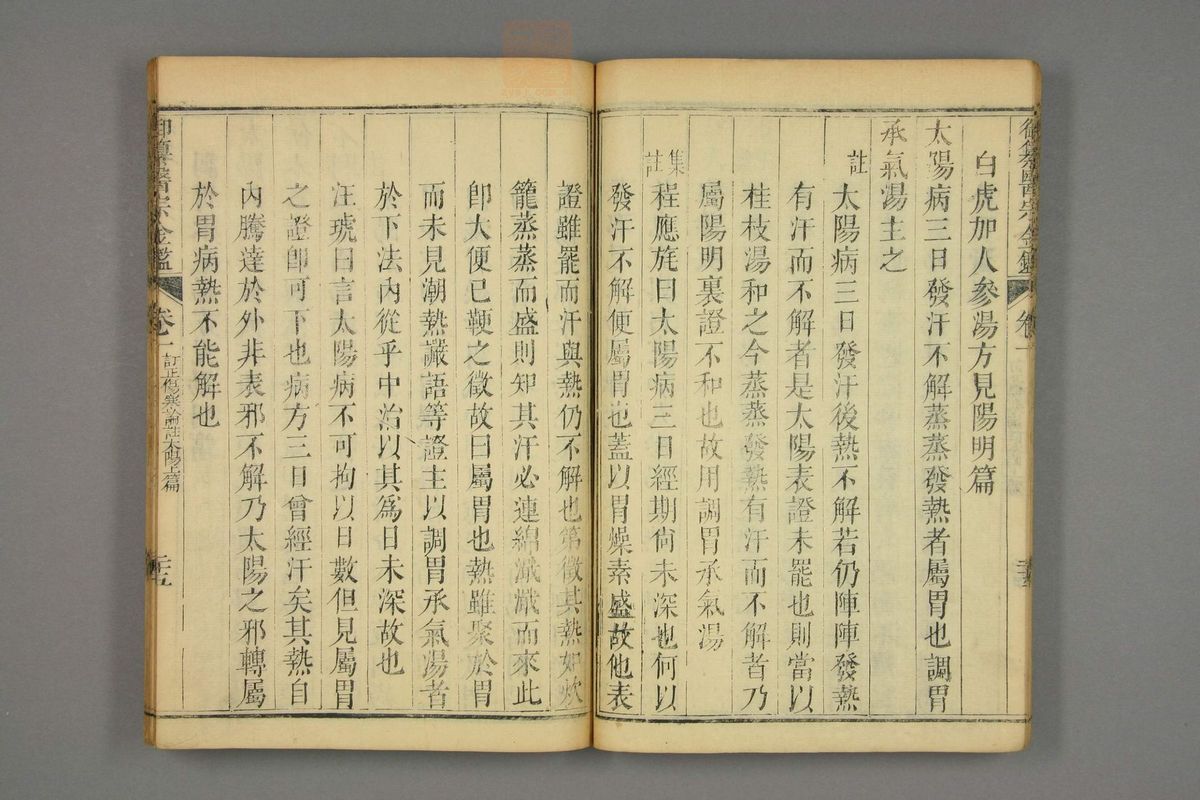 白虎加人參湯方見陽明篇
太陽病三日發汗不解蒸蒸發熱者屬胃也調胃
承氣湯主之
註太陽病三日發汗後熱不解若仍陣陣發熱
有汗而不解者是太陽表證未罷也則當以
桂枝湯和之今蒸蒸發熱有汗而不解者乃
屬陽明裏證不和也故用調胃承氣湯
集註程應旄曰太陽病三日經期尙未深也何以
發汗不解便屬胃也蓋以胃燥素盛故他表
證雖罷而汗與熱仍不解也第徵其熱如炊
籠蒸蒸而盛則知其汗必連綿濈濈而來此
卽大便已鞕之徵故曰屬胃也熱雖聚於胃
而未見潮熱讝語等證主以調胃承氣湯者
於下法內從乎中治以其爲日未深故也
汪琥曰言太陽病不可拘以日數但見屬胃
之證卽可下也病方三日曾經汗矣其熱自
內騰達於外非表邪不解乃太陽之邪轉屬
於胃病熱不能解也
御纂醫宗金鑑 卷一 訂正傷寒論註太陽上篇